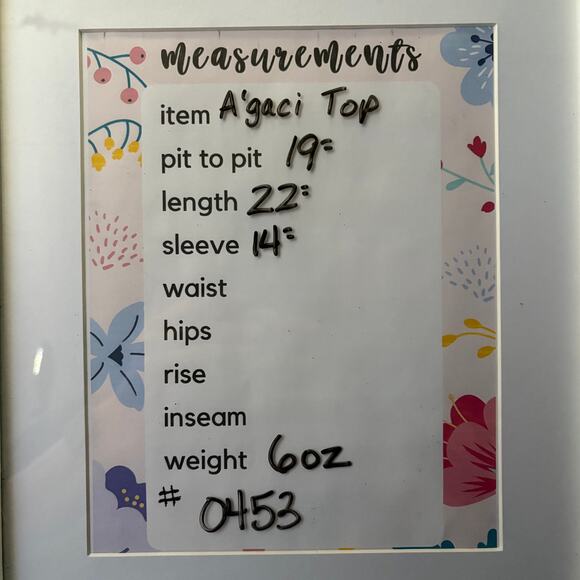 measurements
item A'gaci Top
pit to pit 19"
length 22"
sleeve 14"
waist
hips
rise
inseam
weight 6oz
# 0453